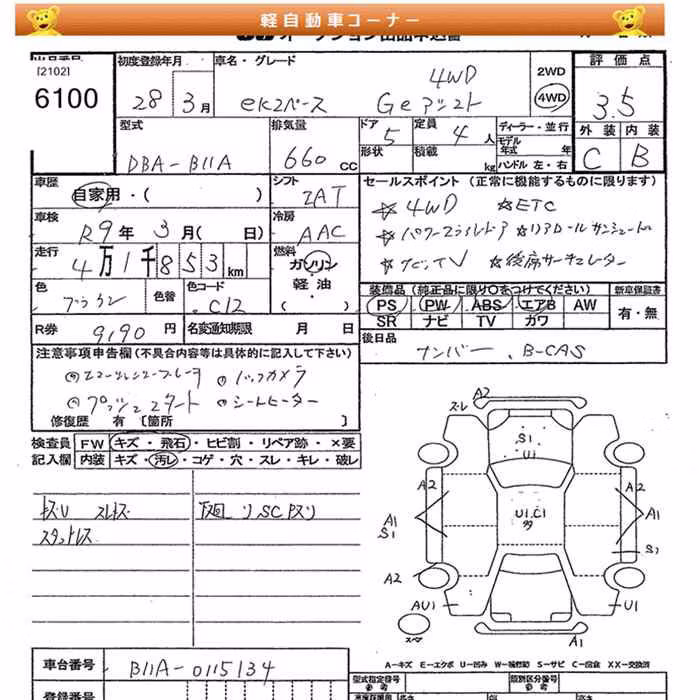 軽自動車コーナー
[2102]
6100
初度登録年月
28 3月
車名・グレード
4WD
ek2ペース Geアシスト
2WD
4WD
評価点
3.5
外装 内装
C B
型式
DBA-B11A
排気量
660 CC
ドア 5
形状
定員 4 人
積載 kg
ディーラー・並行
モデル年式 年
ハンドル 左・右
車歴
自家用・( )
シフト
2AT
セールスポイント (正常に機能するものに限ります)
☆4WD ☆ETC
☆パワースライドドア ☆リアロールサンシェード
☆ナビTV ☆後席サーキュレーター
車検
R9年 3月( 日)
冷房
AAC
走行
4万1千853km
燃料
ガソリン
・
軽油
( )
色
ブラウン
色替
色コード
C12
装飾品(純正品に限り○をつけてください)
PS PW ABS エアB AW
SR ナビ TV カワ
新車保証書
有・無
R券
9190 円
名変通知期限 月 日
後日品
ナンバー、B-CAS
注意事項申告欄(不具合内容等は具体的に記入して下さい)
◎エマージェンシーブレーキ ○バックカメラ
◎プッシュスタート ○シートヒーター
修復歴 有 [箇所 ]
検査員
記入欄
FW キズ・飛石・ヒビ割・リペア跡・×要
内装 キズ・汚レ・コゲ・穴・スレ・キレ・破レ
スタッドレス
A2
ズレ
S1
U1
A2 A2
U1.C1
多
A1 A1
S1
S1
A2
AU1 U1
スペア
A1
A-キズ E-エクボ U-凹み W-補修跡 S-サビ C-腐食 XX-交換済
車台番号
B11A-0115134
登録番号
型式指定番号
参考
類別区分番号
参考